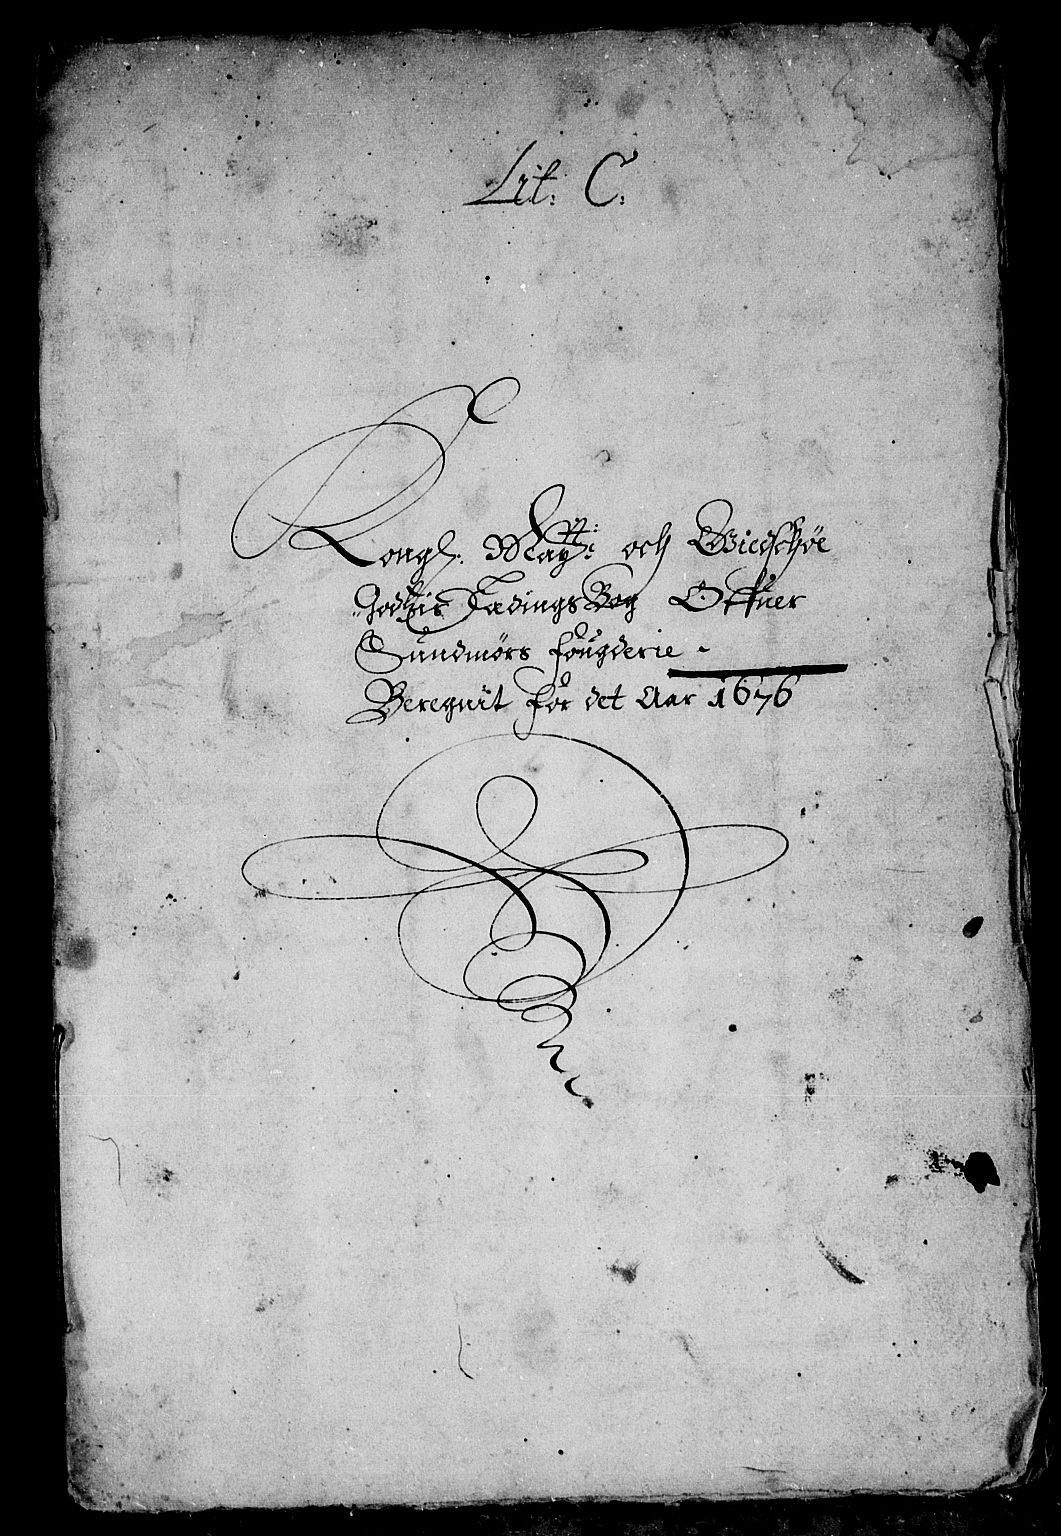 Lit: C:
Kongl: Maytt: och Biedschøe
Jordbis Tadings Bog Offuer
Sundmørs fougderie -
Beregnit for det Aar 1676